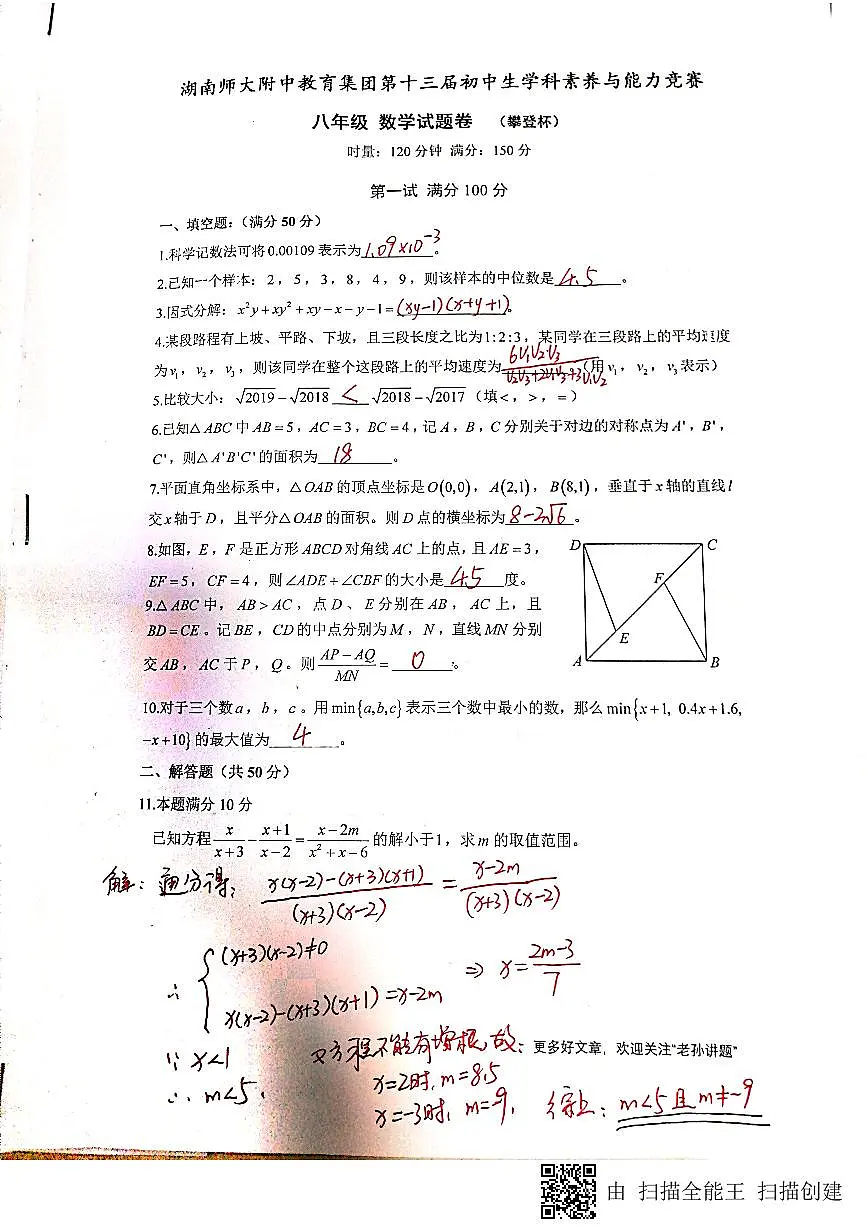 湖南师大附中教育集团第十三届初中生学科素养与能力竞赛
八年级 数学试题卷 （攀登杯）
时量：120分钟 满分：150分
第一试 满分100分
一、填空题：（满分50分）
1.科学记数法可将0.00109表示为1.09×10⁻³。
2.已知一个样本：2，5，3，8，4，9，则该样本的中位数是4.5。
3.因式分解：x²y+xy²+xy−x−y−1=(xy−1)(x+y+1)。
4.某段路程有上坡、平路、下坡，且三段长度之比为1:2:3，某同学在三段路上的平均速度
为v₁，v₂，v₃，则该同学在整个这段路上的平均速度为6V₁V₂V₃/(V₂V₃+2V₁V₃+3V₁V₂)（用v₁，v₂，v₃表示）
5.比较大小：√2019−√2018 < √2018−√2017（填<，>，=）
6.已知△ABC中AB=5，AC=3，BC=4，记A，B，C分别关于对边的对称点为A'，B'，
C'，则△A'B'C'的面积为18。
7.平面直角坐标系中，△OAB的顶点坐标是O(0,0)，A(2,1)，B(8,1)，垂直于x轴的直线l
交x轴于D，且平分△OAB的面积。则D点的横坐标为8−2√6。
8.如图，E，F是正方形ABCD对角线AC上的点，且AE=3，
EF=5，CF=4，则∠ADE+∠CBF的大小是45度。
9.△ABC中，AB>AC，点D、E分别在AB，AC上，且
BD=CE。记BE，CD的中点分别为M，N，直线MN分别
交AB，AC于P，Q。则(AP−AQ)/MN=0。
D C
F
E
A B
10.对于三个数a，b，c。用min{a,b,c}表示三个数中最小的数，那么min{x+1, 0.4x+1.6,
−x+10}的最大值为4。
二、解答题（共50分）
11.本题满分10分
已知方程x/(x+3)−(x+1)/(x−2)=(x−2m)/(x²+x−6)的解小于1，求m的取值范围。
解：通分得：(x(x−2)−(x+3)(x+1))/((x+3)(x−2))=(x−2m)/((x+3)(x−2))
∴{(x+3)(x−2)≠0
x(x−2)−(x+3)(x+1)=x−2m
⇒ x=(2m−3)/7
∵ x<1
∴ m<5.
又方程不能有增根，故：
更多好文章，欢迎关注“老孙讲题”
x=2时，m=8.5
x=−3时，m=−9，
综上：m<5且m≠−9
由 扫描全能王 扫描创建